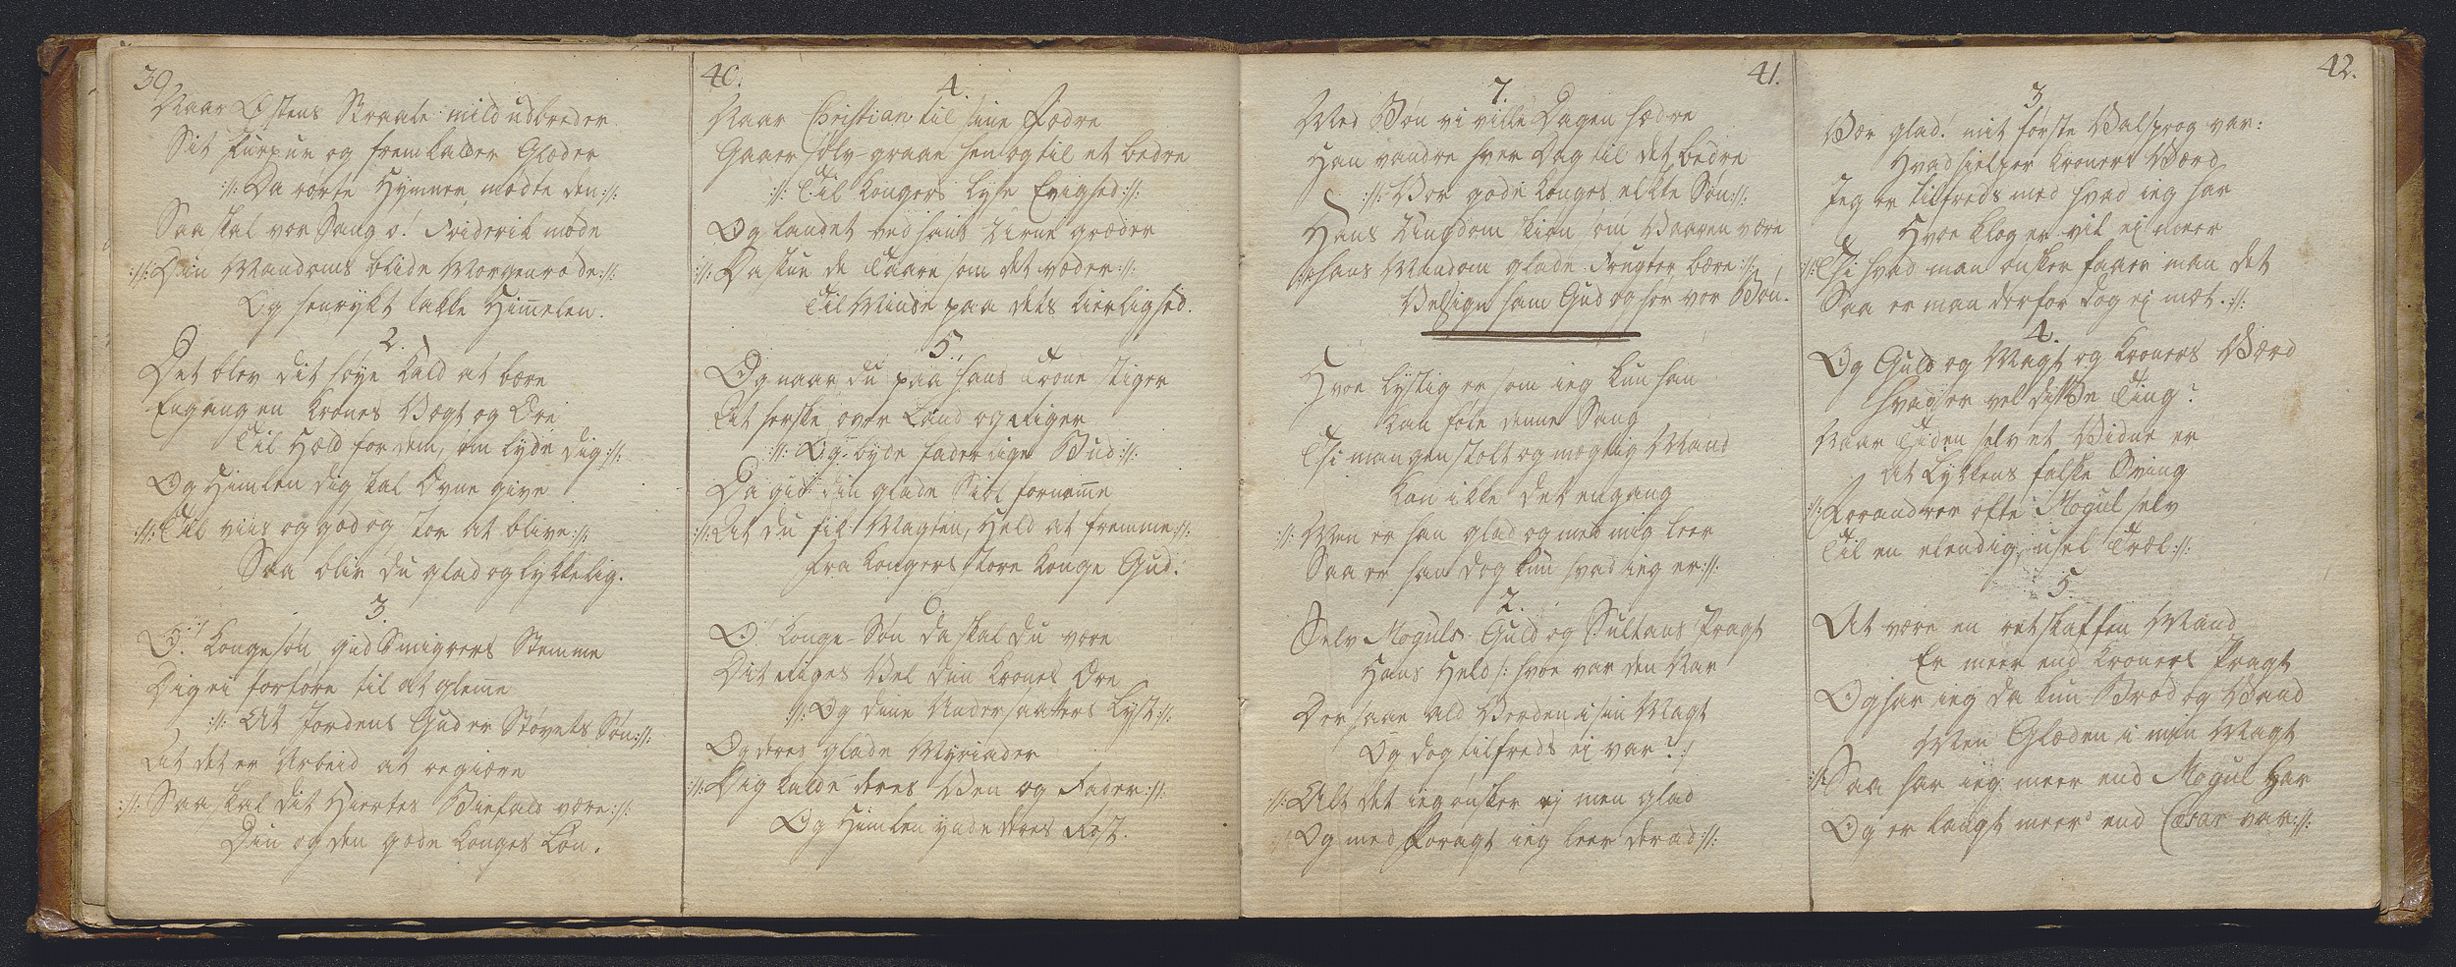 39.
Naar Østens Straale mild udbreder
Sit Purpur og fremkalder Glæder
:/: Da rørte Hymner mødte den :/:
Saa skal vor Sang o! Friderik møde
:/: Din Mandoms blide Morgenrøde :/:
Og henrykt takke Himelen.
2.
Det blev dit høye Kald at bære
Engang en Krones Vægt og Ære
Til Held for dem, om lyde dig :/:
Og Himlen dig skal Evne give
:/: Til viis og god og stor at blive :/:
Saa bliv du glad og lykkelig.
3.
O! Kongesøn gid Smigrers Stemme
Dig ei forføre til at glemme
:/: At Jordens Gud er Støvets Søn :/:
At det er Arbeid at regiære
:/: Saa skal dit Hiertes Biefald være :/:
Din og den gode Konges Løn.
40.
4.
Naar Christian til sine Fædre
Gaaer sølv-graae hen og til et bedre
:/: Til Kongers lyse Evighed :/:
Og Landet ved hans Urne græder
:/: Da skue de Taare som det væder :/:
Til Minde paa dets Kierlighed.
5.
Og naar du paa hans Trone stiger
At herske over Land og Riger
:/: Og byde faderlige Bud :/:
Da gid din glade Siæl fornemme
:/: At du fik Magten, Held at fremme :/:
Fra Kongers store Konge Gud.
6.
O! Konge-Søn da skal du være
Dit Riges Vel din Krones Ære
:/: Og dine Undersaatters Lyst :/:
Og deres glade Myriader
:/: Dig kalde deres Ven og Fader :/:
Og Himlen ynde deres Røst.
41.
7.
Med Bøn vi ville Dagen hædre
Han vandre hver Dag til det bedre
:/: Vor gode Konges ælkte Søn :/:
Hans Ungdom skiøn om Vaaren være
:/: Hans Mandom glade Frugter bære :/:
Velsign ham Gud og hør vor Bøn.
Hvor lystig er som ieg kun han
Kan føle denne Sang
Thi mangen stolt og mægtig Mand
Kan ikke det engang
:/: Men er han glad og med mig leer
Saa er han dog kun hvad ieg er :/:
2.
Selv Moguls Guld og Sultans Pragt
Hans Held /: hvor var den Nar
Der saae ald Verden i sin Magt
Og dog tilfreds ei var? :/
:/: Alt det ieg ønsker ej men glad
Og med Foragt ieg leer derad :/:
42.
3.
Vær glad! mit første Valsprog var:
Hvad hielper Kroners Værd
Jeg er tilfreds med hvad ieg har
Hvor klog er vil ej meer
:/: Thi hvad man ønsker faaer man det
Saa er man derfor dog ej mæt. :/:
4.
Og Guld og Magt og Kroners Værd
Hvad er vel disse Ting?
Naar Tiden selv et Vidne er
At Lykkens falske Sving
:/: Forandrer ofte Mogul selv
Til en elendig, usel Træl :/:
5.
At være en retskaffen Mand
Er meer end Kroners Pragt
Og har ieg da kun Brød og Vand
Men Glæden i min Magt
:/: Saa har ieg meer end Mogul har
Og er langt meer end Cæsar var :/: